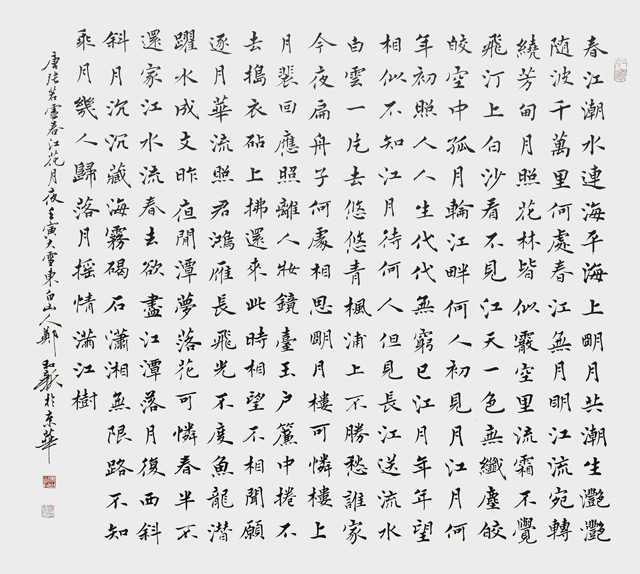 春江潮水連海平海上明月共潮生灔灔
随波千萬里何處春江無月明江流宛轉
繞芳甸月照花林皆似霰空里流霜不覺
飛汀上白沙看不見江天一色無纖塵皎
皎空中孤月輪江畔何人初見月江月何
年初照人人生代代無窮已江月年年望
相似不知江月待何人但見長江送流水
白雲一片去悠悠青楓浦上不勝愁誰家
今夜扁舟子何處相思明月樓可憐樓上
月裴回應照離人妝鏡臺玉户簾中捲不
去搗衣砧上拂還來此時相望不相聞願
逐月華流照君鴻雁長飛光不度魚龍潛
躍水成文昨夜閒潭夢落花可憐春半不
還家江水流春去欲盡江潭落月復西斜
斜月沉沉藏海霧碣石瀟湘無限路不知
乘月幾人歸落月摇情滿江樹
唐張若虛春江花月夜壬寅大雪東白山人鄭於京華